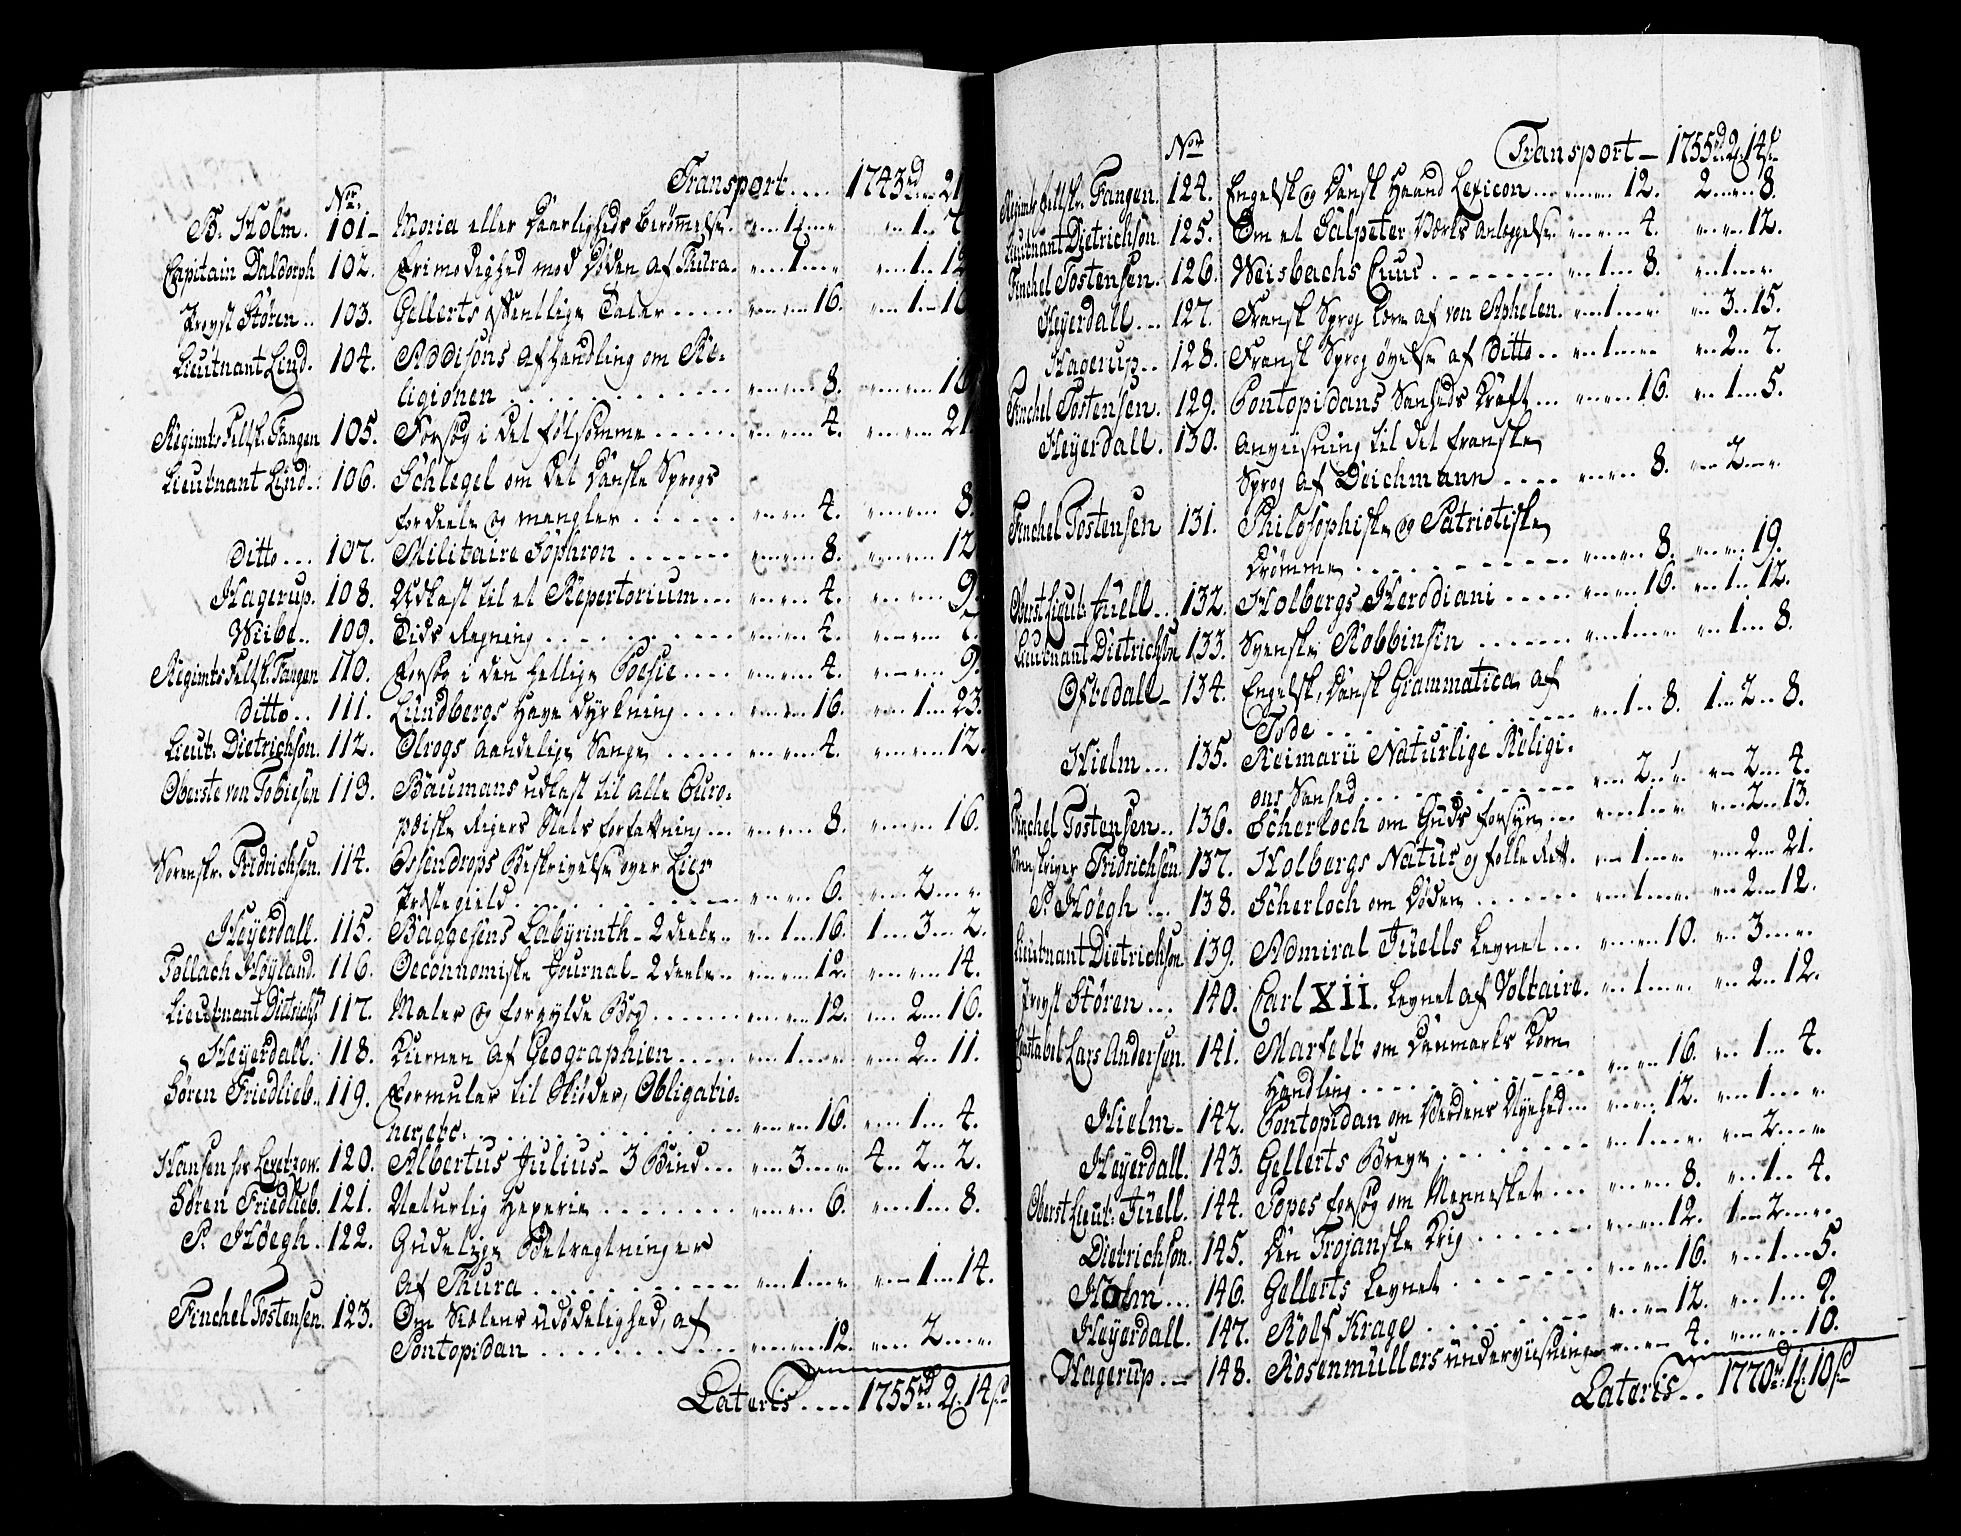 Transport .... 1743rd „ 21
Nr.
B. Holm. 101- Moria eller Daarligheds Berømmelse. „ 1 „ „ 1 „
Capitain Daldorph 102. Frimodighed mod Døden af Thura. „ 1 „ „ 1 „ 12
Provst Stören .. 103. Gellerts offentlige Taler ..... „ „ 16. „ 1 „ 16
Lieutnant Lind. 104. Addisons Afhandling om Re-
ligionen ............ „ „ 8. „ „ 16
Regimts Feltsk. Fangen 105. Forsøg i det følsomme ...... „ „ 4. „ „ 21
Lieutnant Lind.. 106. Schlegel om det Danske Sprogs
fordeele og mangler ...... „ „ 4. „ „ 8.
Ditto ... 107. Militaire Sophron ....... „ „ 8. „ „ 12
Hagerup. 108. Udkast til et Repertorium ... „ „ 4. „ „ 9.
Wiibe .. 109. Tids Regning .......... „ „ 4. „ „
Regimts Feltsk. Fangen 110. Forsøg i den hellige Poesie .... „ „ 4. „ „ 9.
Ditto .. 111. Lundbergs Have dyrkning .... „ „ 16. „ 1 „ 23.
Lieut: Dietrichson. 112. Olrogs aandelige Sange ..... „ „ 4. „ „ 12.
Oberste von Tobiesen 113. Baumans udkast til alle Euro-
pæiske Rigers Stats forfatning ... „ „ 8. „ „ 16.
Sorenskr. Fridrichsen. 114. Essendrops Beskrivelse over Lier
Præstegield ........... „ „ 6. „ 2 „ „
Heyerdall. 115. Baggesens Labyrinth - 2 deele .. „ 1 „ 16. 1 „ 3 „ 2.
Tollach Höyland. 116. Oeconnomiske Journal - 2 deele .. „ „ 12. „ „ 14.
Lieutnant Dietrichs. 117. Maler og forgylde Bog ...... „ „ 12. „ 2 „ 16.
Heyerdall. 118. Kiernen af Geographien ..... „ 1 „ „ „ 2 „ 11.
Sören Friedlieb.. 119. Formular til Skiøder, Obligatio-
ner, etc. ............ „ „ 16. „ 1 „ 4.
Hansen for Levetzow. 120. Albertus Julius - 3 Bind ... „ 3 „ „ 4 „ 2 „ 2.
Sören Friedlieb. 121. Naturlig Hexerie ........ „ „ 6. „ 1 „ 8.
P. Höegh .. 122. Gudelige Betragtninger
af Thura ............ „ 1 „ „ „ 1 „ 14.
Finchel Tostensen. 123. Om Siælens udødelighed, af
Pontopidan ............ „ „ 12. „ 2 „ „
Lateris .... 1755rd 2. 14
Transport - 1755rd 2. 14
Nr
Regimts feltskr. Fangen. 124. Engelsk og Dansk Haand Lexicon ... „ „ 12. 2 „ „ 8.
Lieutnant Dietrichson. 125. Om et Salpeter Værks Anleggelse. „ „ 4. „ „ 12.
Finchel Tostensen. 126. Weisbachs Cuur ........ „ 1 „ 8. „ 1 „ „
Heyerdall ... 127. Fransk Sprog lære af von Aphelen. „ 1 „ „ „ 3 „ 15.
Hagerup .. 128. Fransk Sprog øvelse af Ditto .. „ 1 „ „ „ 2 „ 7.
Finchel Tostensen. 129. Pontopidans Sanheds Kraft ... „ „ 16. „ 1 „ 5.
Heyerdall. 130. Anviisning til det franske
Sprog af Deichmann .... „ „ 8. „ 2 „ „
Finchel Tostensen 131. Philosophiske og Patriotiske
Drømme ............ „ „ 8. „ „ 19.
Oberst Lieut: Juell .. 132. Holbergs Herodiani ..... „ „ 16. „ 1 „ 12.
Lieutnant Dietrichson 133. Svenske Robbinsin ...... „ 1 „ „ „ 1 „ 8.
Oftedall - 134. Engelsk, Dansk Grammatica af
Tode ............ „ 1 „ 8. 1 „ 2 „ 8.
Hielm ... 135. Reimarii Naturlige Religi-
ons Sanhed ............ „ 2 „ „ „ 2 „ 4.
Finchel Tostensen .. 136. Scherloch om Guds forsyn ... „ 1 „ „ „ 2 „ 13.
Sorenskriver Fridrichsen. 137. Holbergs Natur og folke Ret. „ 1 „ „ „ 2 „ 21.
P. Höegh ... 138. Scherloch om Døden ....... „ 1 „ „ „ 2 „ 12.
Lieutnant Dietrichson. 139. Admiral Juells Levnet ... „ „ 10. „ 3 „ „
Provst Stören ... 140. Carl XII. Levnet af Voltaire. „ 1 „ „ „ 2 „ 12.
Lars Andersen. 141. Marfelt om Danmarks Korn
Handling ............ „ „ 16. „ 1 „ 4.
Hielm - 142. Pontopidan om Verdens Nyehed ... „ „ 12. „ 1 „ „
Heyerdall. 143. Gellerts Breve ........ „ 1 „ „ „ 2 „ „
Oberst Lieut: Juell. 144. Popes forsøg om Mennesket ... „ „ 8. „ 1 „ 4.
Dietrichson. 145. Den Trojanske Krig ....... „ „ 12. 1 „ 2 „ „
Holm ... 146. Gellerts Levnet ........ „ „ 16. „ 1 „ 5.
Heyerdall. 147. Rolf Krage ......... „ „ 12. „ 1 „ 9.
Hagerup .- 148. Rosenmullers underviisning „ „ 4. „ „ 10.
Lateris .. 1770rd: 1. 10